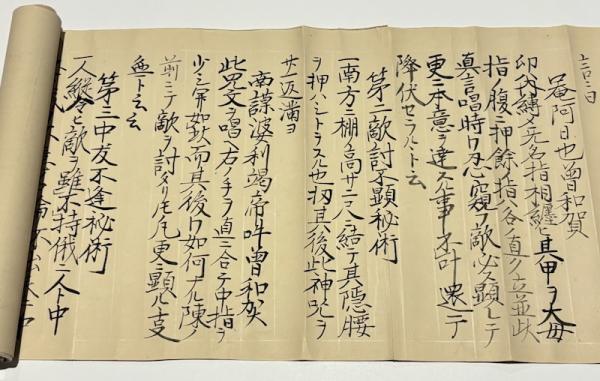 言曰
唵阿日也曽和賀
印外縛シ无名指相纏ヒ其甲ヲ大母
指ノ腹ニ押餘ノ指ハ各ノ直ク立並此
真言唱時ハ忍窺フ敵必ス顕レテ
更ニ本意ヲ達スル事不叶還テ
降伏セラルヽト云
第二敵討不顕秘術
一南方ニ棚ノ高サ二八結テ其隠腰
ヲ押ハントヲ也扨其後此神呪ヲ
廿一返満ヨ
南謨婆利竭帝吽曽和賀
此咒文ヲ唱ヘ右ノ手ヲ直ニ合テ中指ヲ
少シ屈如此而其後ハ如何ナル陳ノ
前ニテ敵ヲ討タリモ更ニ顕ル支
無ト云云
第三中友不逢秘術
一人縦令ヒ敵ヲ雖不持俄ニ人ト中